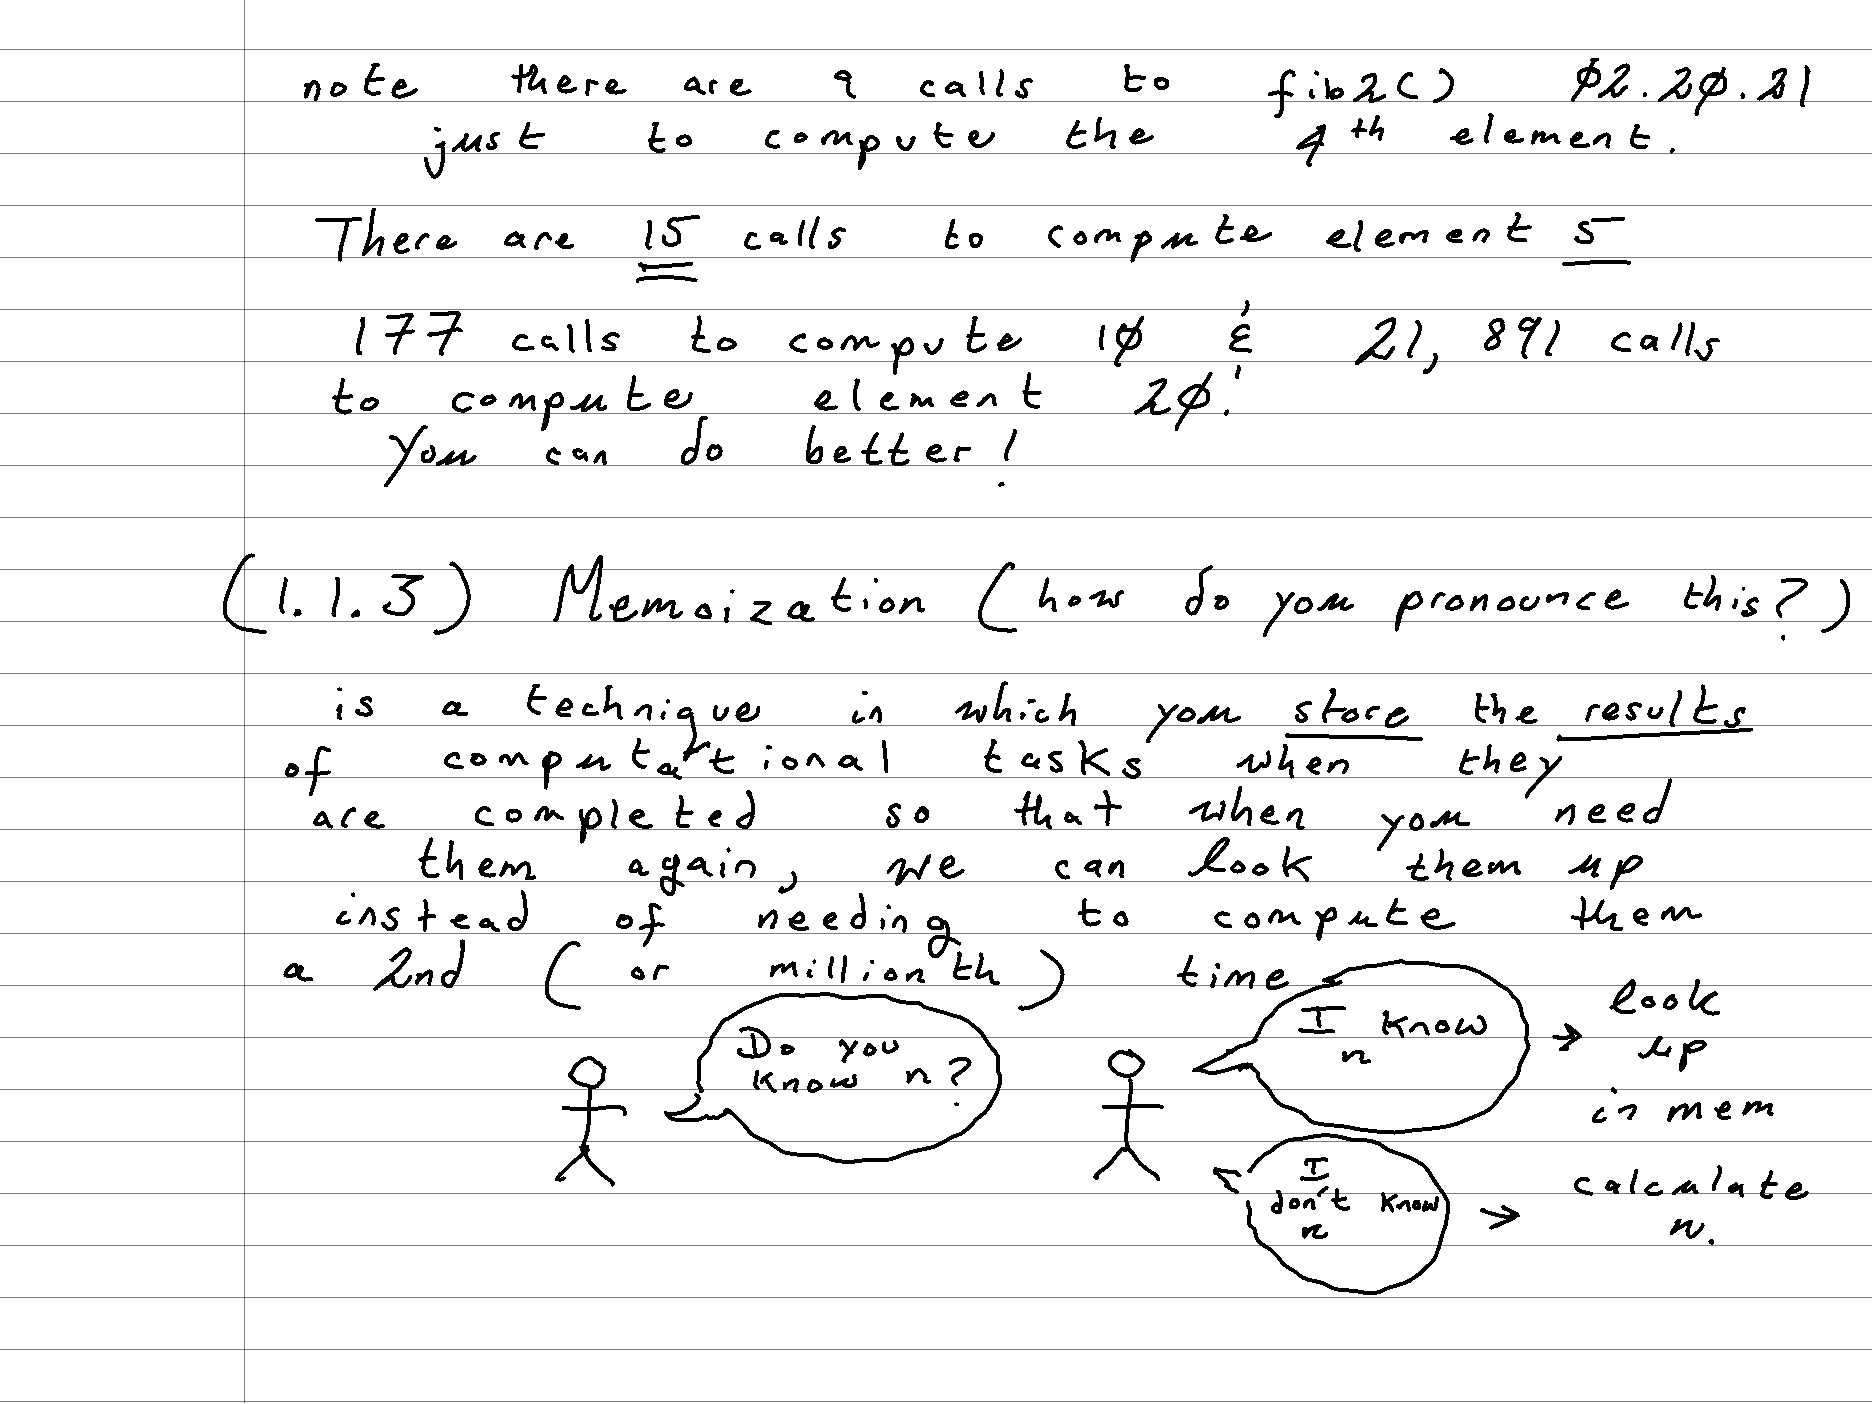 note there are 9 calls to fib2() 02.20.21
just to compute the 4th element.
There are 15 calls to compute element 5
177 calls to compute 10 & 21,891 calls
to compute element 20!
You can do better!
(1.1.3) Memoization (how do you pronounce this?)
is a technique in which you store the results
of computational tasks when they
are completed so that when you need
them again, we can look them up
instead of needing to compute them
a 2nd (or million th) time.
Do you
know n?
I know
n
→ look
up
in mem
I
don't know
n
→ calculate
n.